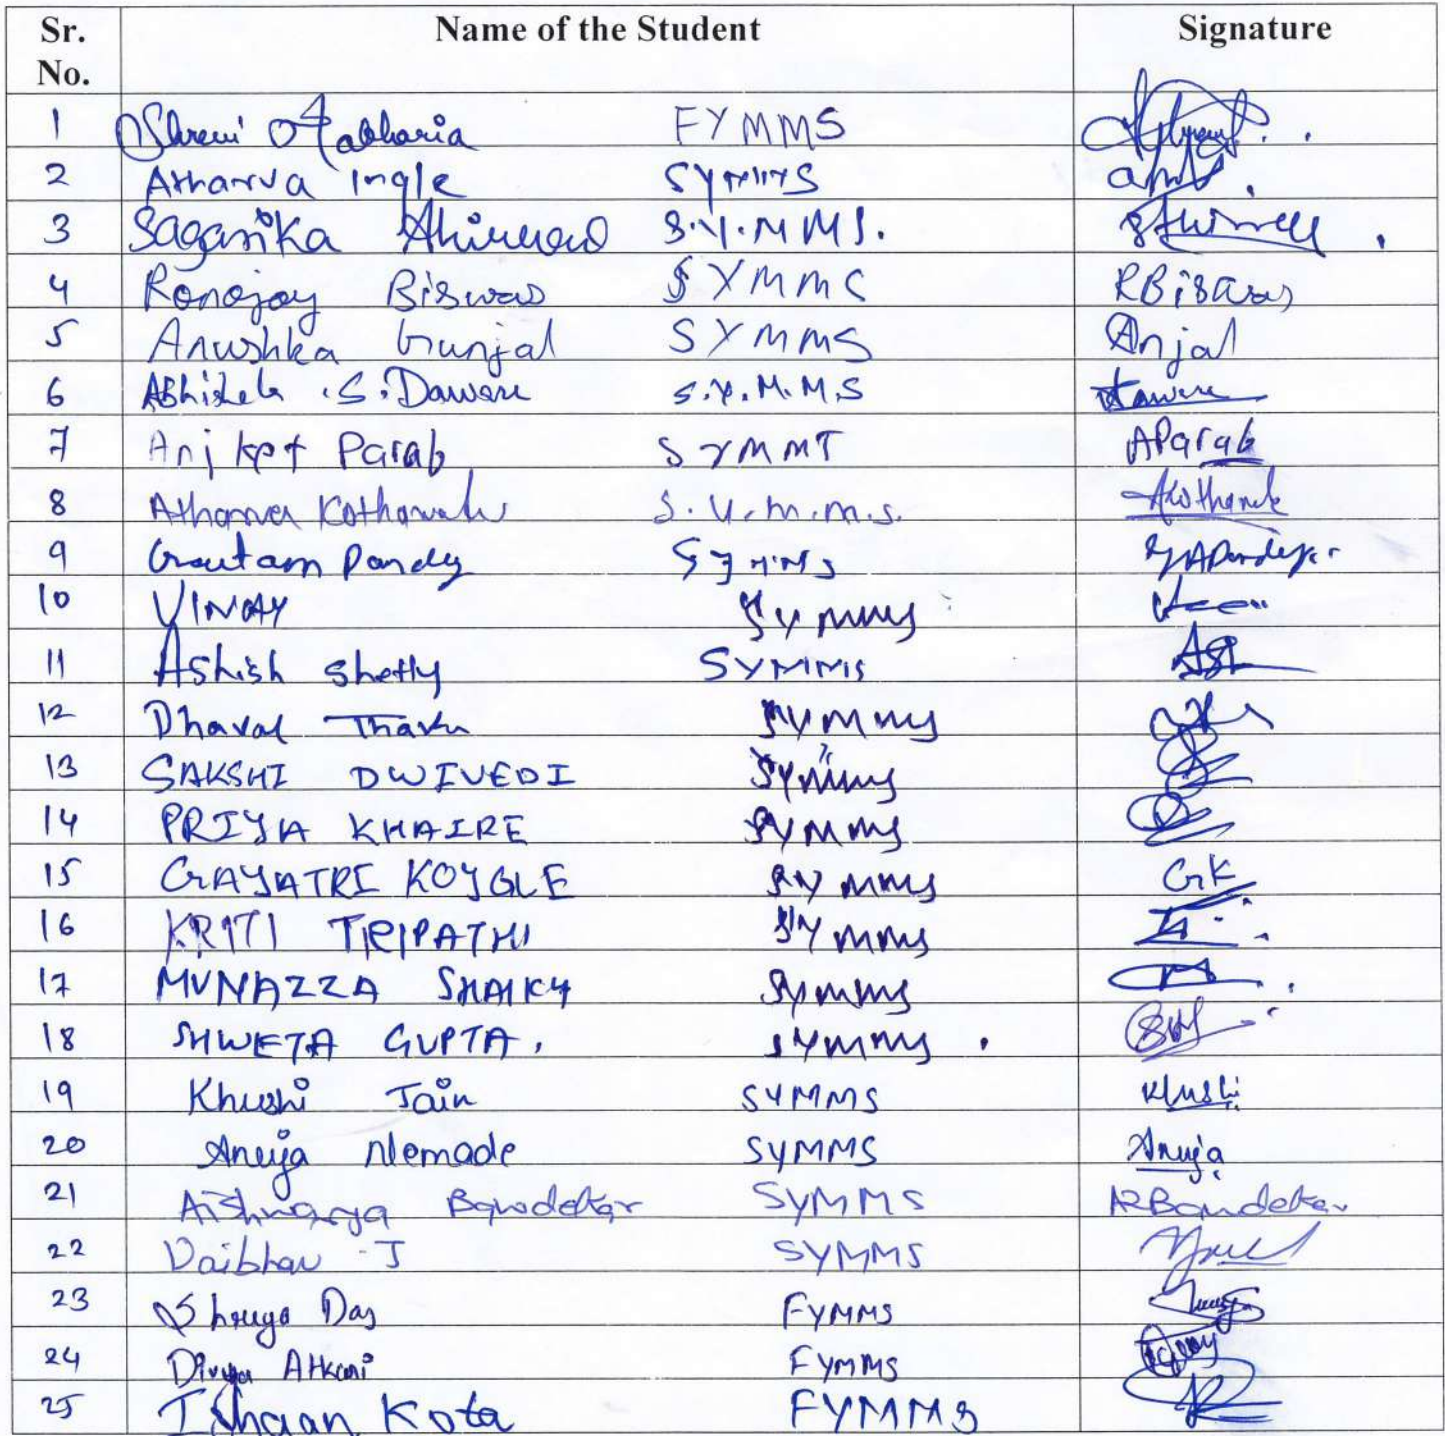 Sr. No. Name of the Student Signature
1 Shreni FYMMS
2 Atharva Ingle SYMMS
3 Sagarika Ahirrao S.Y.MMS.
4 Ronojoy Biswas SYMMS RBiswas
5 Anushka Gunjal SYMMS Anjal
6 Abhishek .S. Daware S.Y.M.M.S Daware
7 Aniket Parab SYMMT AParab
8 Atharva Kothawale S.Y.m.m.s. AKothawale
9 Gautam Pandey SYMMS GAPandey
10 VINAY SYMMS
11 Ashish Shetty SYMMS
12 Dhaval SYMMS
13 SAKSHI DWIVEDI SYMMS
14 PRIYA KHAIRE SYMMS
15 GAYATRI KOYGLE SYMMS GK
16 KRITI TRIPATHI SYMMS
17 MUNAZZA SHAIKH SYMMS
18 SHWETA GUPTA. SYMMS.
19 Khushi Jain SYMMS Khushi
20 Anuja Nemade SYMMS Anuja
21 Aishwarya Bandekar SYMMS ARBandekar
22 Vaibhav J SYMMS
23 Das FYMMS
24 Divya FYMMS
25 Ishaan Kota FYMMS